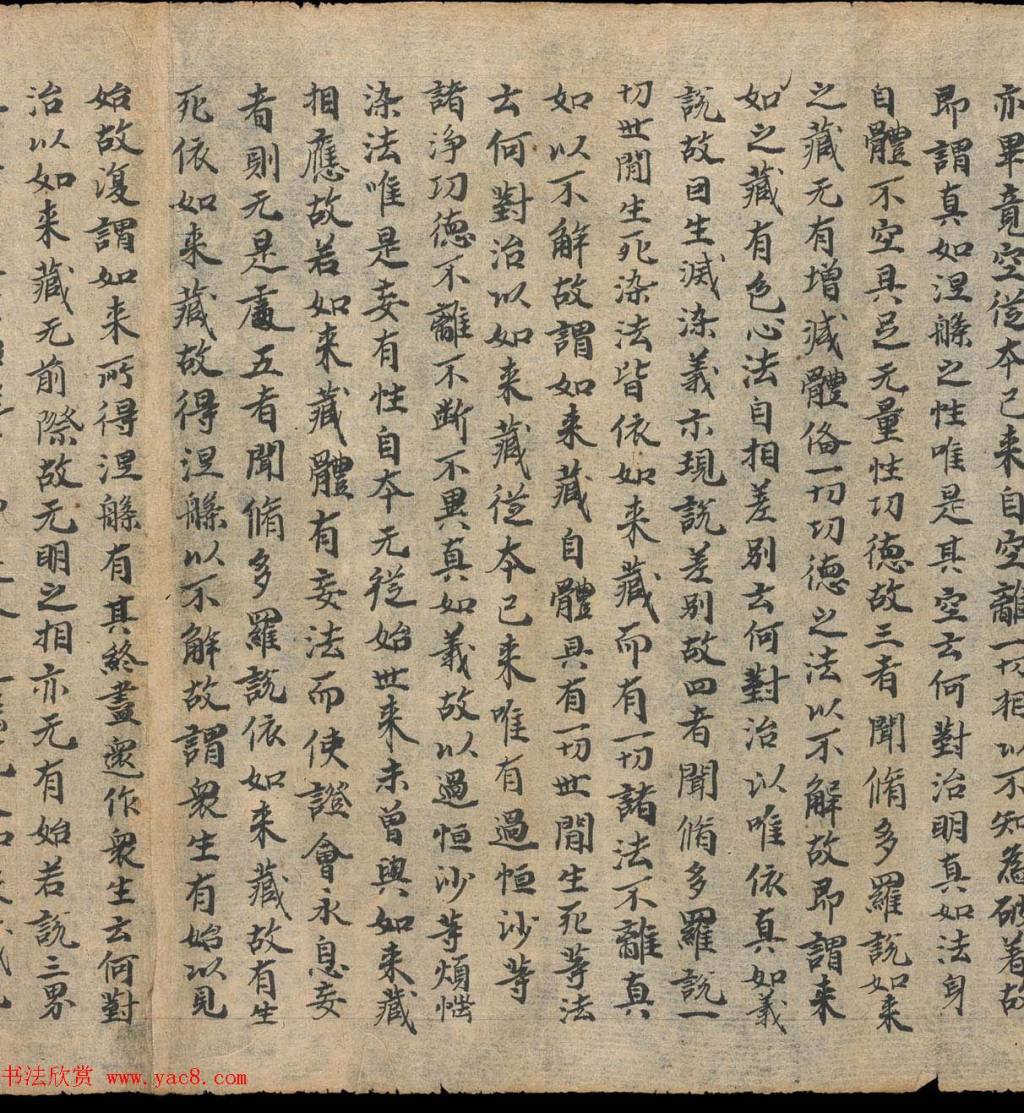 亦畢竟空從本已来自空離一切相以不知為破著故
即謂真如涅槃之性唯是其空云何對治明真如法身
自體不空具足无量性功徳故三者聞脩多羅説如来
之藏无有增减體俻一切功徳之法以不解故即謂来
如之藏有色心法自相差别云何對治以唯依真如義
説故曰生滅染義示現説差别故四者聞脩多羅説一
切世間生死染法皆依如来藏而有一切諸法不離真
如以不解故謂如来藏自體具有一切世間生死等法
云何對治以如来藏從本已来唯有過恒沙等
諸淨功徳不離不断不異真如義故以過恒沙等煩惱
染法唯是妄有性自本无從始世来未曾與如来藏
相應故若如来藏體有妄法而使證會永息妄
者則无是處五者聞脩多羅説依如来藏故有生
死依如来藏故得涅槃以不解故謂衆生有始以見
始故復謂如来所得涅槃有其終盡還作衆生云何對
治以如来藏无前際故无明之相亦无有始若説三界
书法欣赏 www.yac8.com